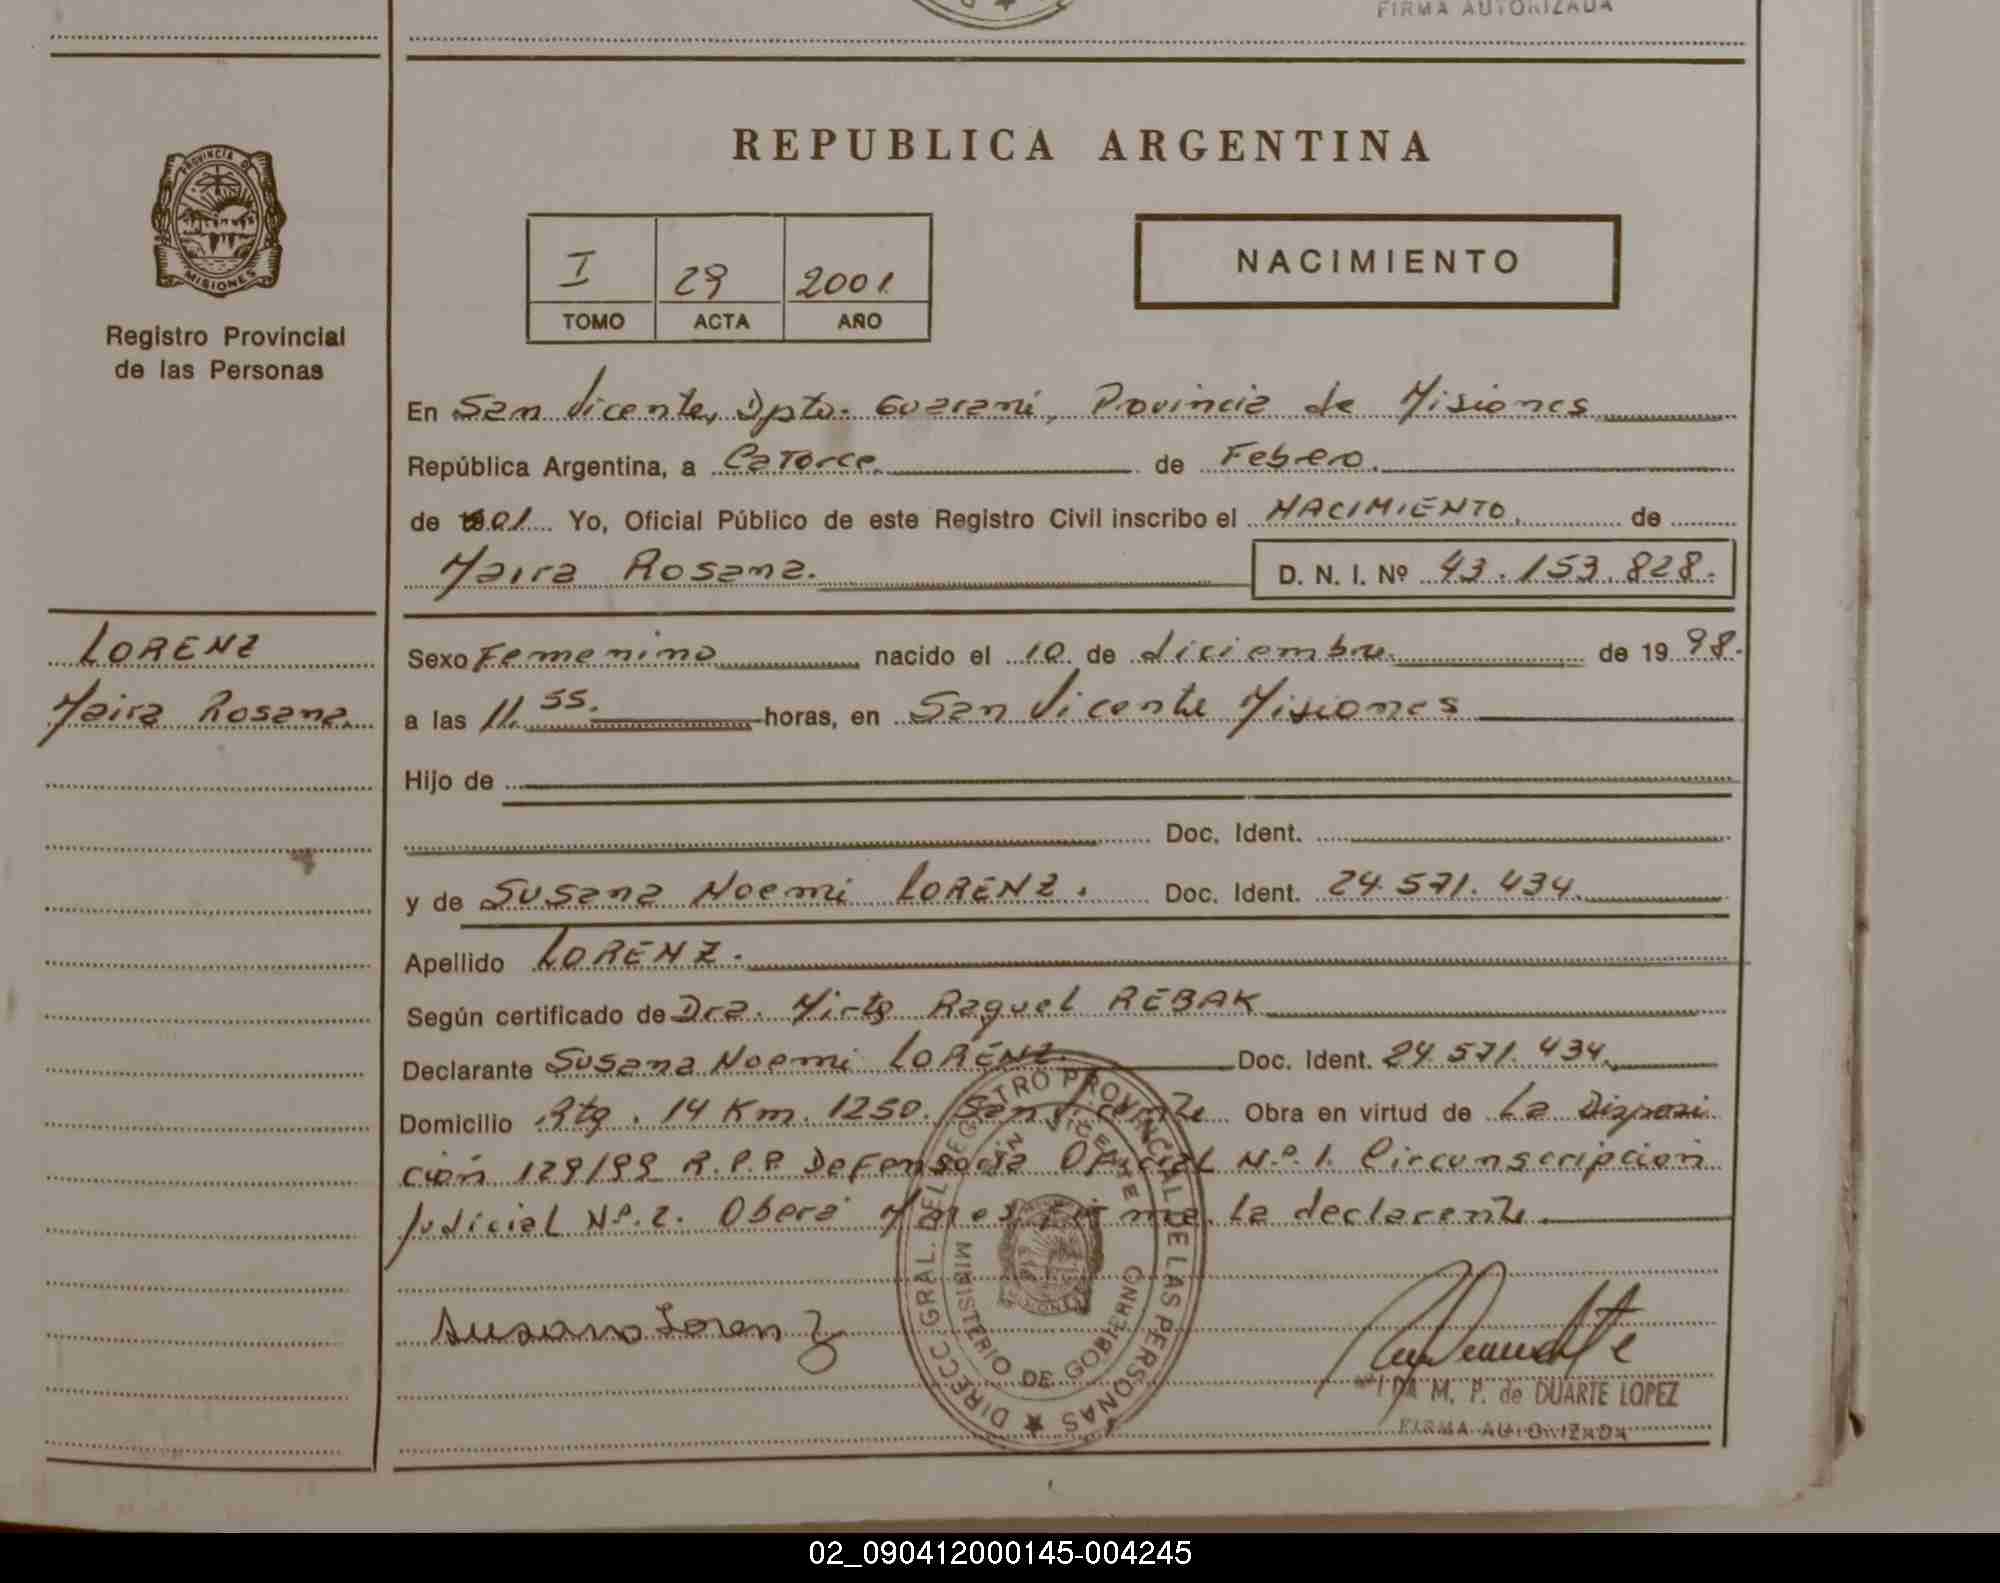 FIRMA AUTORIZADA
PROVINCIA DE
MISIONES
Registro Provincial
de las Personas
REPUBLICA ARGENTINA
I 29 2001
TOMO ACTA AÑO
NACIMIENTO
En San Vicente, Dpto. Guarani, Provincia de Misiones
República Argentina, a Catorce de Febero.
de 01 Yo, Oficial Público de este Registro Civil inscribo el NACIMIENTO. de
Maira Rosana. D. N. I. Nº 43.153.828.
LORENZ
Maira Rosana.
Sexo Femenino nacido el 10 de diciembre. de 19 98.
a las 11.55. horas, en San Vicente Misiones
Hijo de
Doc. Ident.
y de Susana Noemi LORENZ. Doc. Ident. 24.571.434.
Apellido LORENZ.
Según certificado de Dra. Mirta Raquel REBAK
Declarante Susana Noemi LORENZ. Doc. Ident. 24.571.434.
Domicilio Rta. 14 Km. 1250. San Vicente Obra en virtud de La Disposi
ción 129/99 R.P.P. Defensoria Oficial Nº. 1. Circunscripcion
Judicial Nº. 2. Obera Mnes. Firma. La declarante.
DIRECC. GRAL. DEL REGISTRO PROVINCIAL DE LAS PERSONAS
MINISTERIO DE GOBIERNO
VICENTE
MISIONES
Susana Lorenz
M. P. de DUARTE LOPEZ
FIRMA AUTORIZADA
02_090412000145-004245